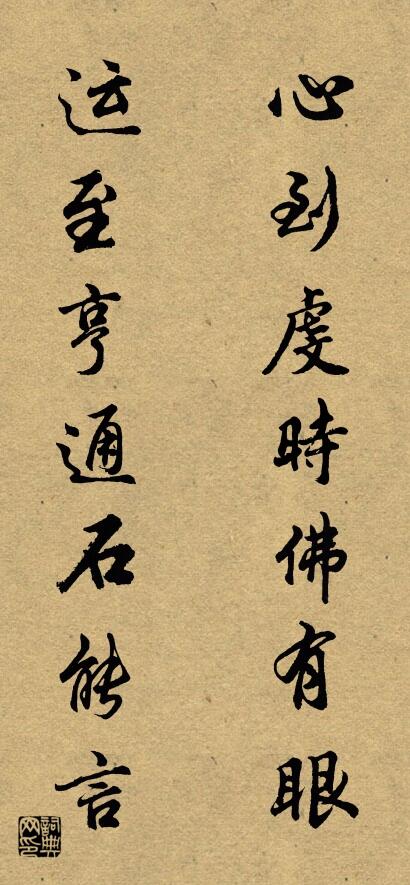 心到虔時佛有眼
运至亨通石能言
詞典网印